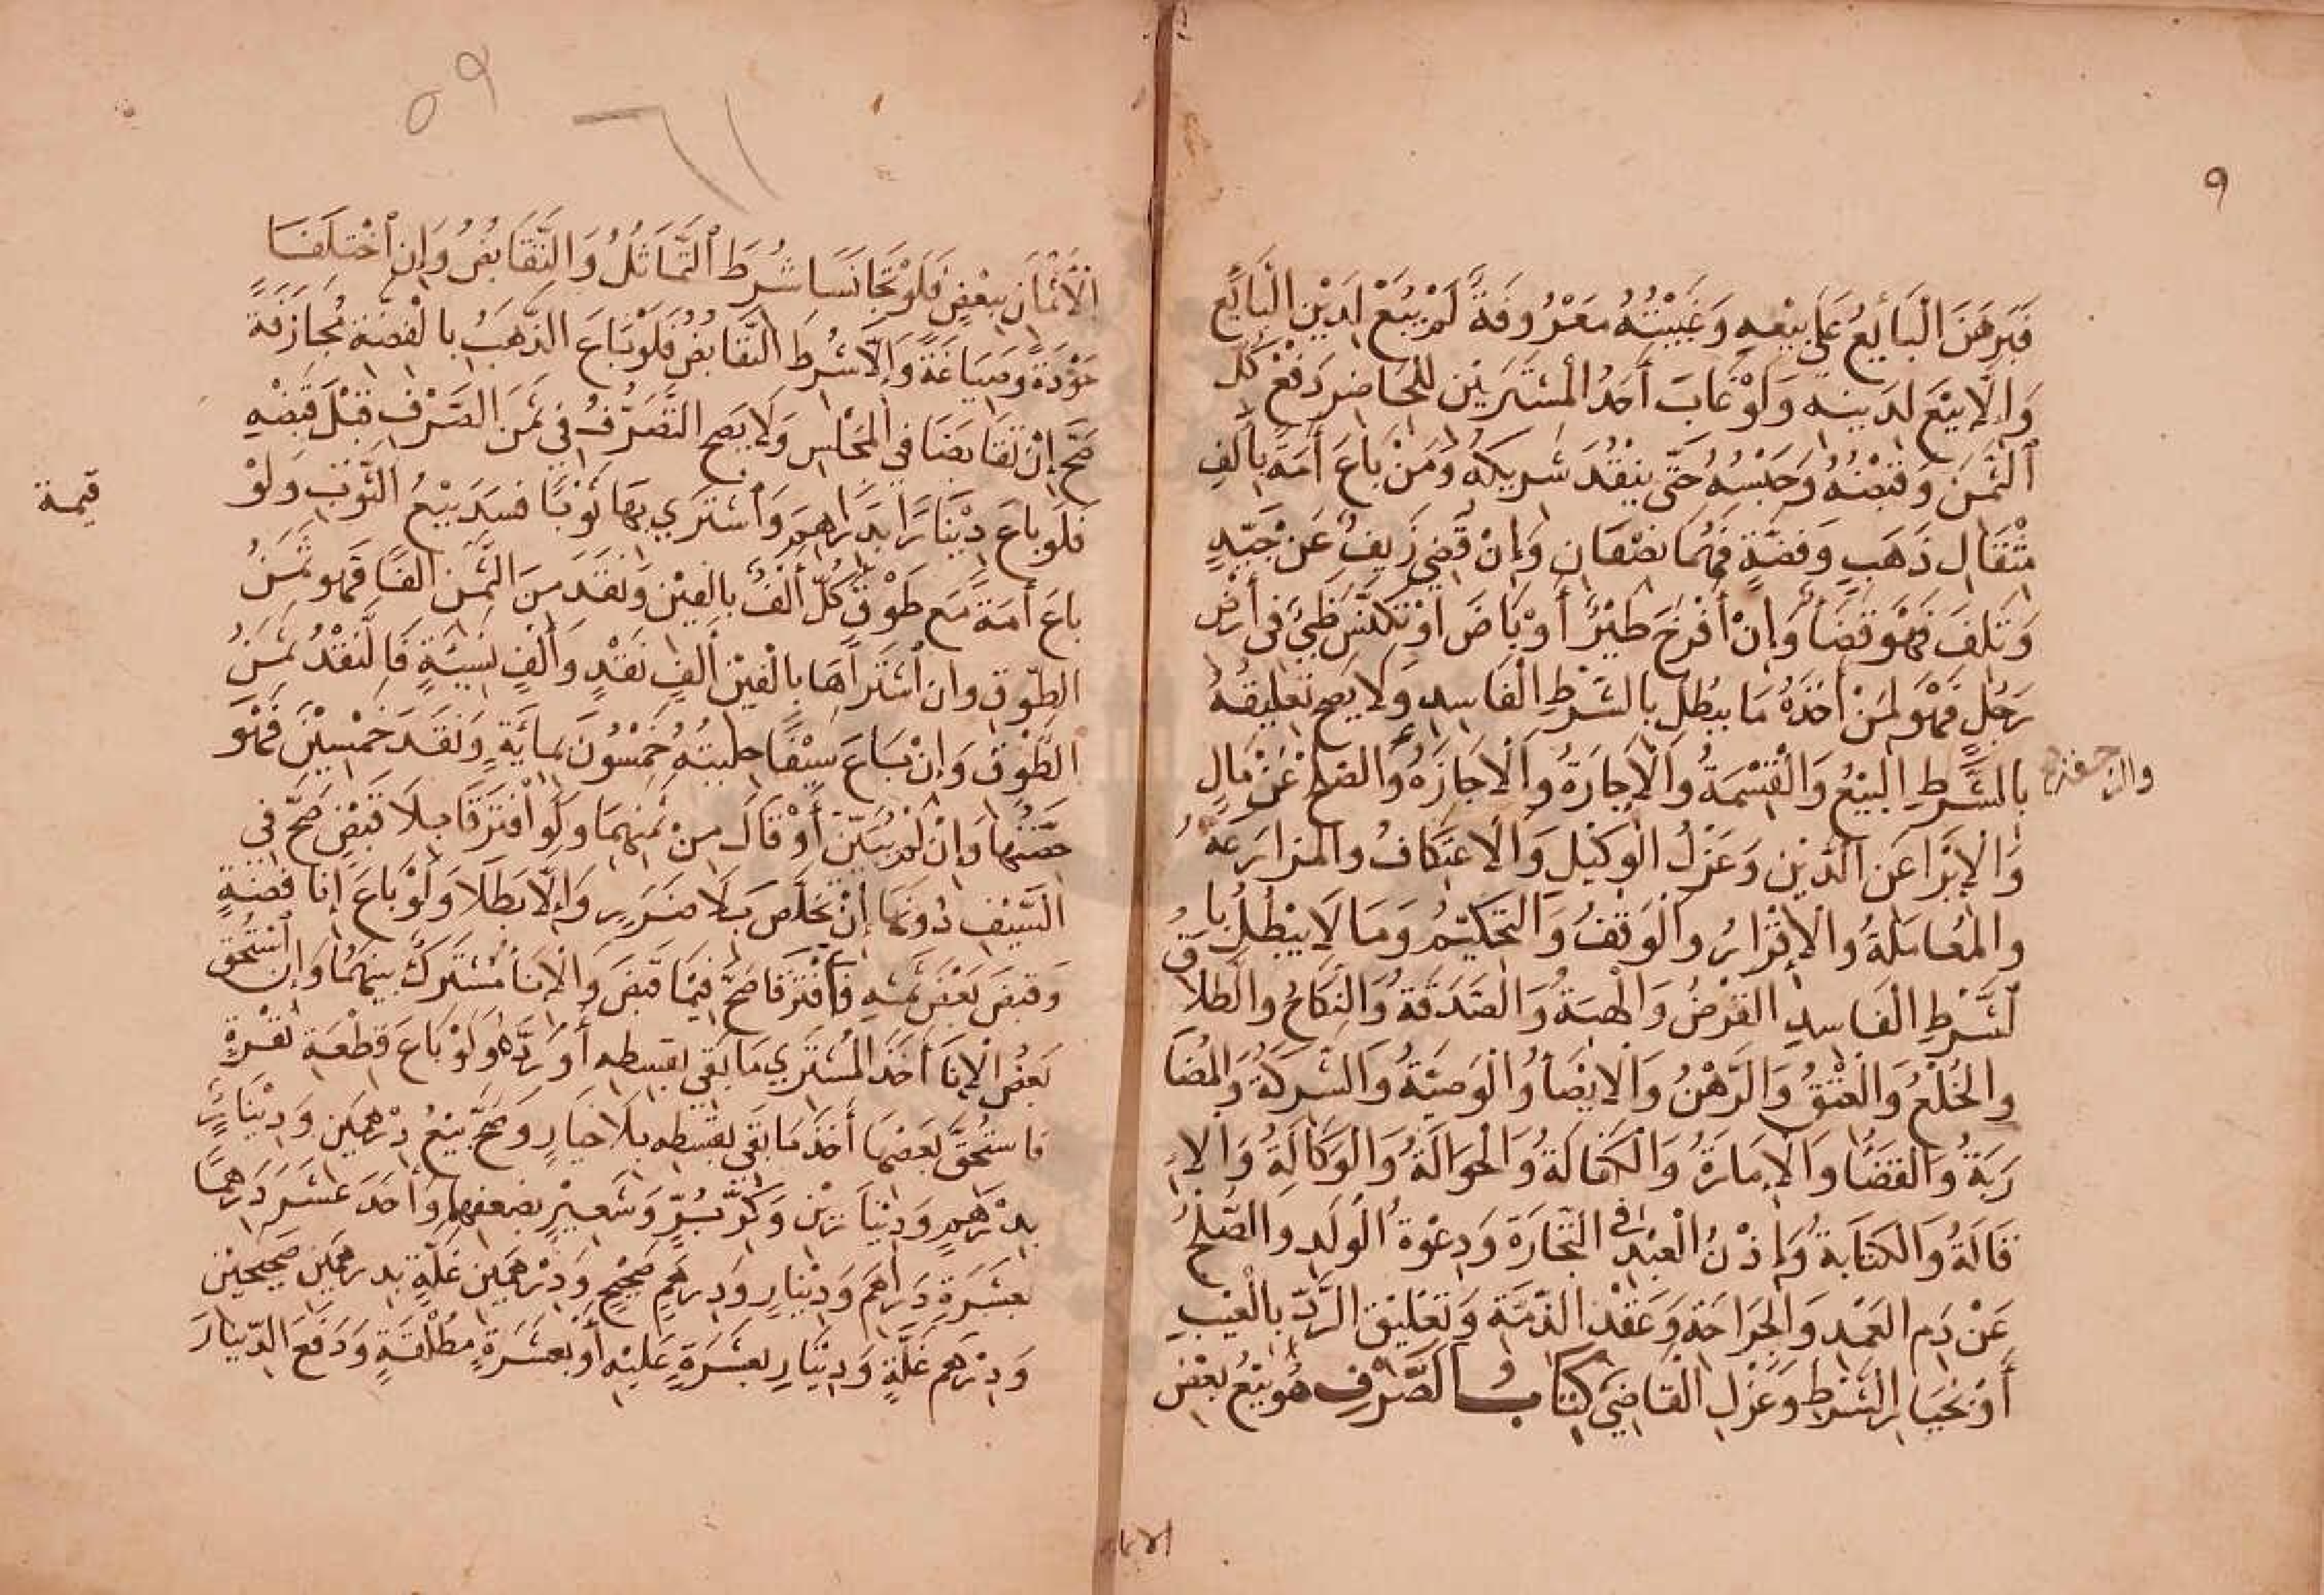 ٩
فَبَرْهَنَ الْبَائِعُ عَلَى بَيْعِهِ وَغَيْبَتُهُ مَعْرُوفَةٌ لَمْ يُبَعْ لِدَيْنِ الْبَائِعِ
وَإِلَّا بِيْعَ لِدَيْنِهِ وَلَوْ غَابَ أَحَدُ الْمُشْتَرِيَيْنِ لِلْحَاضِرِ دَفْعُ كُلِّ
الثَّمَنِ وَقَبْضُهُ وَحَبْسُهُ حَتَّى يَنْقُدَ شَرِيكُهُ وَمَنْ بَاعَ أَمَةً بِأَلْفِ
مِثْقَالِ ذَهَبٍ وَفِضَّةٍ فَهُمَا نِصْفَانِ وَإِنْ قُضِيَ زَيْفٌ عَنْ جَيِّدٍ
وَتَلِفَ فَهُوَ قَضَاءٌ وَإِنْ أَفْرَخَ طَيْرٌ أَوْ بَاضَ أَوْ تَكَنَّسَ ظَبْيٌ فِي أَرْضِ
رَجُلٍ فَهُوَ لِمَنْ أَخَذَهُ مَا يَبْطُلُ بِالشَّرْطِ الْفَاسِدِ وَلَا يَصِحُّ تَعْلِيقُهُ
بِالشَّرْطِ الْبَيْعُ وَالْقِسْمَةُ وَالْإِجَارَةُ وَالْإِجَازَةُ وَالصُّلْحُ عَنْ مَالٍ
وَالْإِبْرَا عَنِ الدَّيْنِ وَعَزْلُ الْوَكِيْلِ وَالْاِعْتِكَافُ وَالْمُزَارَعَةُ
وَالْمُعَامَلَةُ وَالْإِقْرَارُ وَالْوَقْفُ وَالتَّحْكِيْمُ وَمَا لَا يَبْطُلُ بِا
لشَّرْطِ الْفَاسِدِ الْقَرْضُ وَالْهِبَةُ وَالصَّدَقَةُ وَالنِّكَاحُ وَالطَّلَاقُ
وَالْخُلْعُ وَالْعِتْقُ وَالرَّهْنُ وَالْاِيْصَاءُ وَالْوَصِيَّةُ وَالشَّرِكَةُ وَالْمُضَا
رَبَةُ وَالْقَضَا وَالْإِمَارَةُ وَالْكَفَالَةُ وَالْحَوَالَةُ وَالْوَكَالَةُ وَالْاِ
قَالَةُ وَالْكِتَابَةُ وَإِذْنُ الْعَبْدِ فِي التِّجَارَةِ وَدِعْوَةُ الْوَلَدِ وَالصُّلْحُ
عَنْ دَمِ الْعَمْدِ وَالْجِرَاحَةِ وَعَقْدُ الذِّمَّةِ وَتَعْلِيْقُ الرَّدِّ بِالْعَيْبِ
أَوْ بِخِيَارِ الشَّرْطِ وَعَزْلِ الْقَاضِي كِتَابُ الصَّرْفِ هُوَ بَيْعُ بَعْضِ
الاثمان
٥٩
٦١
الْأَثْمَانِ بِبَعْضٍ فَلَوْ تَجَانَسَا شُرِطَ التَّمَاثُلُ وَالتَّقَابُضُ وَإِنِ اخْتَلَفَا
جَوْدَةً وَصِيَاغَةً وَإِلَّا شُرِطَ التَّقَابُضُ فَلَوْ بَاعَ الذَّهَبَ بِالْفِضَّةِ مُجَازَفَةً
صَحَّ إِنْ تَقَابَضَا فِي الْمَجْلِسِ وَلَا يَصِحُّ التَّصَرُّفُ فِي ثَمَنِ الصَّرْفِ قَبْلَ قَبْضِهِ
فَلَوْ بَاعَ دِيْنَارًا بِدَرَاهِمَ وَاشْتَرَي بِهَا ثَوْبًا فَسَدَ بَيْعُ الثَّوْبِ وَلَوْ
قيمة
بَاعَ أَمَةً مَعَ طَوْقٍ كُلٌّ أَلْفٌ بِأَلْفَيْنِ وَنَقَدَ مِنَ الثَّمَنِ أَلْفًا فَهُوَ ثَمَنُ
الطَّوْقِ وَإِنِ اشْتَرَاهَا بِأَلْفَيْنِ أَلْفٍ نَقْدٍ وَأَلْفٍ نَسِيْئَةٍ فَالنَّقْدُ ثَمَنُ
الطَّوْقِ وَإِنْ بَاعَ سَيْفًا حِلْيَتُهُ خَمْسُوْنَ بِمِائَةٍ وَنَقَدَ خَمْسِيْنَ فَهُوَ
حِصَّتُهَا وَإِنْ لَمْ يُبَيِّنْ أَوْ قَالَ مِنْ ثَمَنِهِمَا وَلَوِ افْتَرَقَا بِلَا قَبْضٍ صَحَّ فِي
السَّيْفِ دُوْنَهَا إِنْ تَخَلَّصَ بِلَا ضَرَرٍ وَإِلَّا بَطَلَا وَلَوْ بَاعَ إِنَا فِضَّةٍ
وَقَبَضَ بَعْضَ ثَمَنِهِ فَافْتَرَقَا صَحَّ فِيْمَا قَبَضَ وَالْإِنَاءُ مُشْتَرَكٌ بَيْنَهُمَا وَإِنِ اسْتُحِقَّ
بَعْضُ الْإِنَا أَخَذَ الْمُشْتَرِي مَا بَقِيَ بِقِسْطِهِ أَوْ رَدَّهُ وَلَوْ بَاعَ قِطْعَةَ نُقْرَةٍ
فَاسْتُحِقَّ بَعْضُهَا أَخَذَ مَا بَقِيَ بِقِسْطِهِ بِلَا خِيَارٍ وَصَحَّ بَيْعُ دِرْهَمَيْنِ وَدِيْنَارٍ
بِدِرْهَمٍ وَدِيْنَارَيْنِ وَكُرِّ بُرٍّ وَشَعِيْرٍ بِضِعْفِهِمَا وَأَحَدَ عَشَرَ دِرْهَمًا
بِعَشَرَةِ دَرَاهِمَ وَدِيْنَارٍ وَدِرْهَمٍ صَحِيْحٍ وَدِرْهَمَيْنِ غَلَّةٍ بِدِرْهَمَيْنِ صَحِيْحَيْنِ
وَدِرْهَمِ غَلَّةٍ وَدِيْنَارٍ بِعَشَرَةٍ عَلَيْهِ أَوْ بِعَشَرَةٍ مُطْلَقَةٍ وَدَفَعَ الدِّيْنَارَ